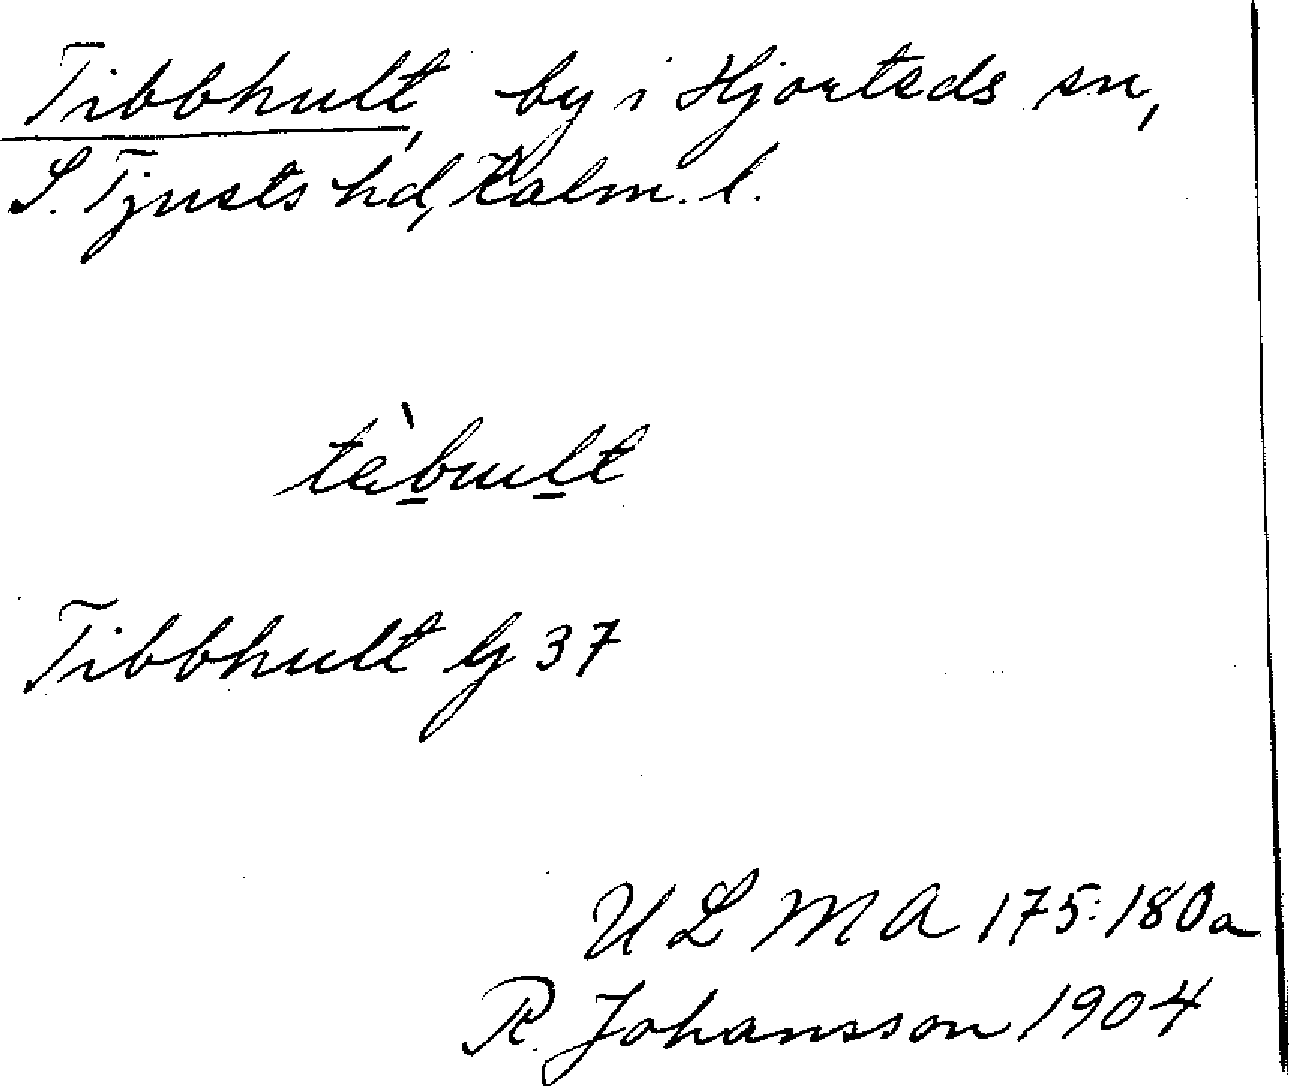 Tibbhult, by i Hjorteds sn,
S. Tjusts hd, Kalm. l.
tèbult
Tibbhult Gj 37
ULMA 175:180a
R. Johansson 1904